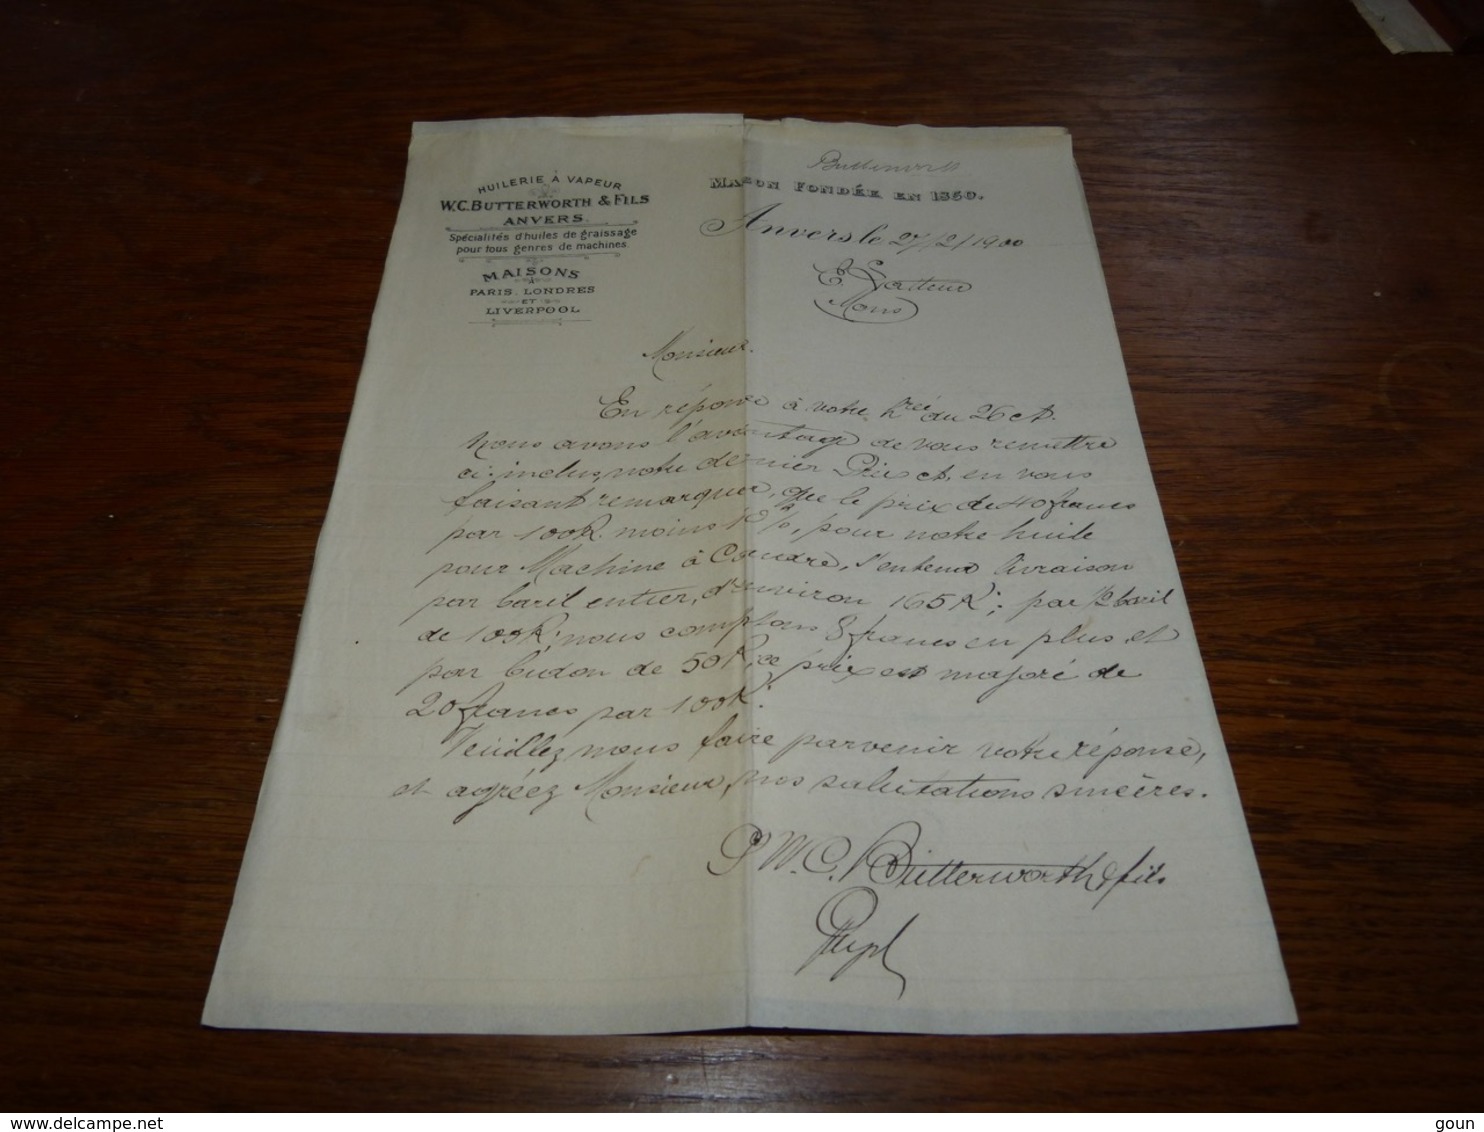 Butterworth
HUILERIE À VAPEUR
W.C. BUTTERWORTH & FILS
ANVERS.
Spécialités d'huiles de graissage
pour tous genres de machines.
MAISONS
À
PARIS, LONDRES
ET
LIVERPOOL
MAISON FONDÉE EN 1850.
Anvers le 27/2/1900
E.
Mons
Monsieur.
En réponse à votre hrée du 26 ct.
nous avons l'avantage de vous remettre
ci-inclus, notre dernier Prix ct, en vous
faisant remarquer, que le prix de 40 francs
par 100K. moins 10%, pour notre huile
pour Machine à Coudre, s'entend livraison
par baril entier, d'environ 165K; par 1/2 baril
de 100K; nous comptons 8 francs en plus, et
par bidon de 50K, ce prix est majoré de
20 francs par 100K.
Veuillez nous faire parvenir votre réponse,
et agréez Monsieur, nos salutations sincères.
P W.C. Butterworth & fils
delcampe.net
goun